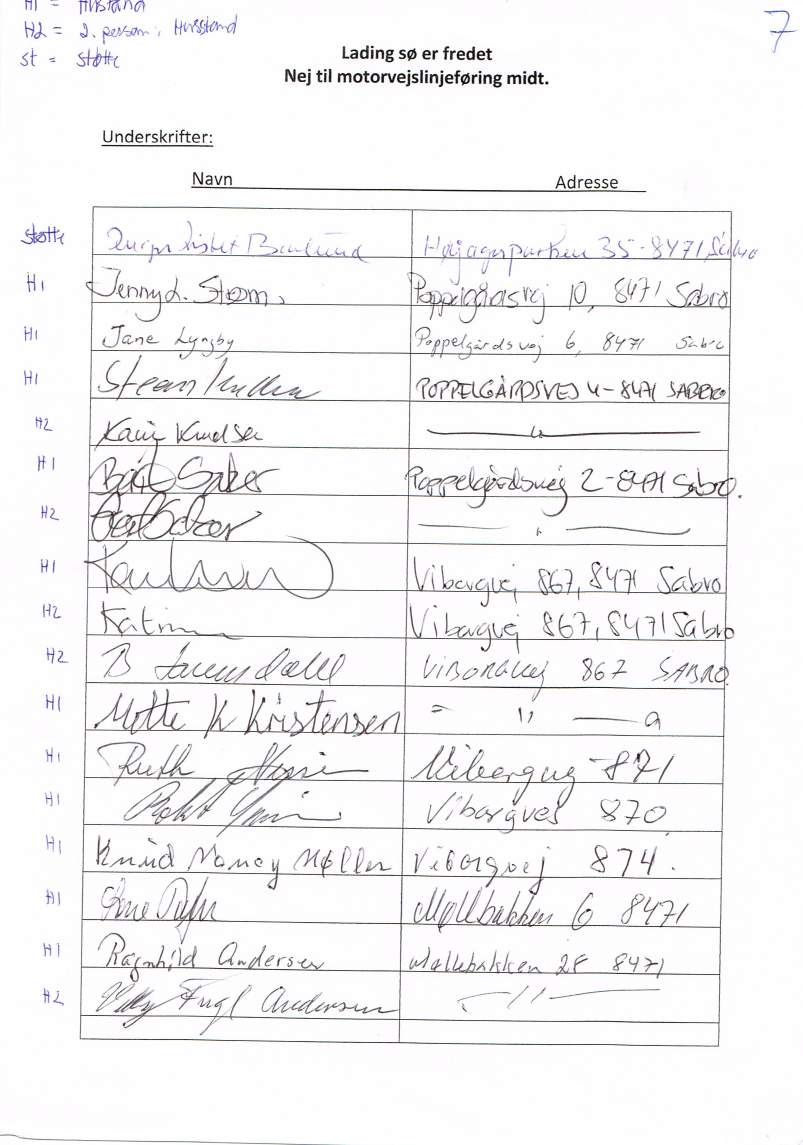 H1 = Husstand
H2 = 2. person i Husstand
st = støtte
7
Lading sø er fredet
Nej til motorvejslinjeføring midt.
Underskrifter:
Navn Adresse
støtte Højagerparken 35 - 8471 Sabro
H1 Jenny L. Strøm, Poppelgårdsvej 10, 8471 Sabro
H1 Jane Lyngby Poppelgårdsvej 6, 8471 Sabro
H1 Steen POPPELGÅRDSVEJ 4 - 8471 SABRO
H2 Karin Knudsen
H1 Poppelgårdsvej 2 - 8471 Sabro.
H2
H1 Viborgvej 867, 8471 Sabro
H2 Viborgvej 867, 8471 Sabro
H2 B VIBORGVEJ 867 SABRO
H1 Mette K Kristensen = "
H1 Ruth Viborgvej 871
H1 Viborgvej 870
H1 Knud Møller Viborgvej 874.
H1 Møllbakken 6 8471
H1 Ragnhild Andersen Møllebakken 28 8471
H2 Fugl Andersen "